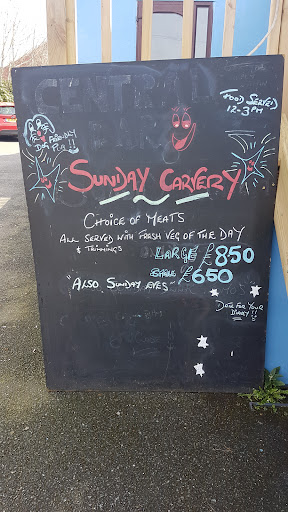 CENTRAL
BAR
FOOD SERVED
12-3PM
SUNDAY CARVERY
CHOICE OF MEATS
ALL SERVED WITH FRESH VEG OF THE DAY
& TRIMMINGS
LARGE £850
SMALL £650
"ALSO SUNDAY EVES"
DATE FOR YOUR
DIARY!!